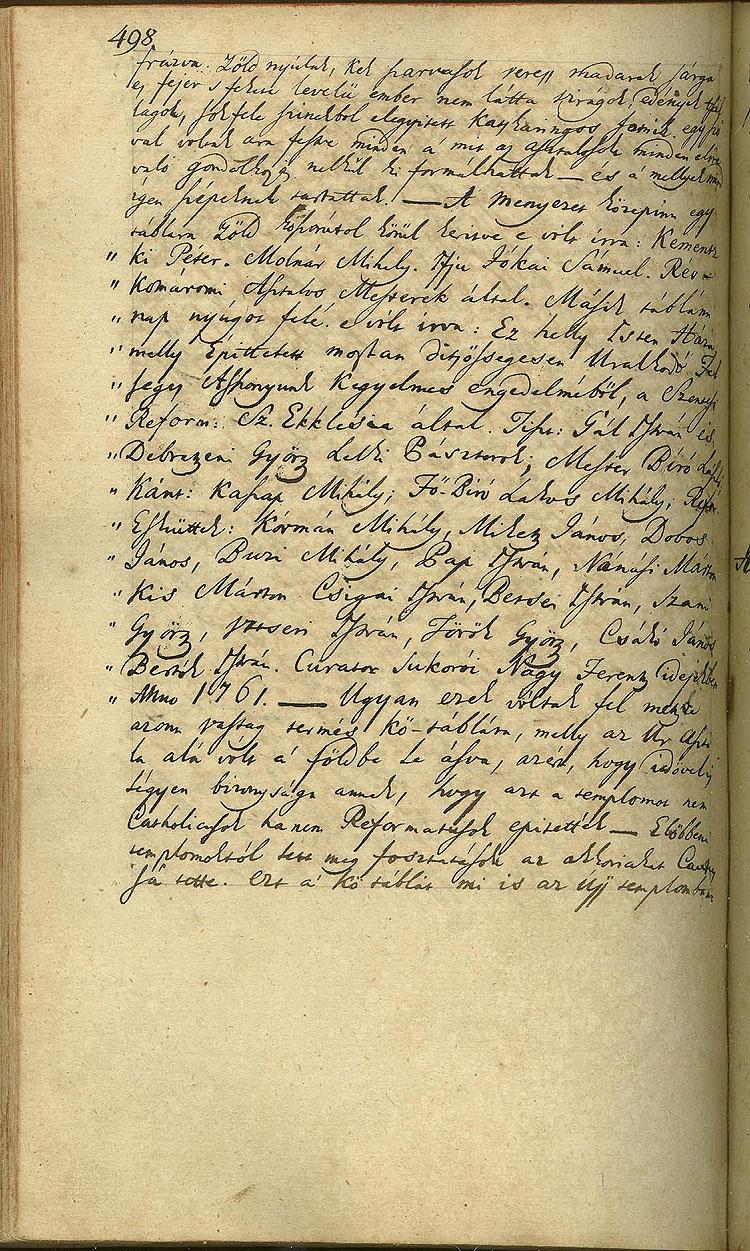 498
frázva. Zöld nyúlak, kék szarvasok veress madarak sárga
ej fejér s fekete levelű ember nem látta virágok, edények
lágok, sokféle színekből elegyített Kaskaringos
val voltak ara festve minden a mit az asztalosok minden előre
való gondolkozás nélkül ki formálhattak — és a' mellyek
igen szépeknek tartattak. — A Menyezet közepinn egy
táblán Zöld koszorútol körül kerítve e vólt írva: Kement
" ki Péter. Molnár Mihaly. Ifju Jókai Sámuel. Rév-
" Komáromi Asztalos Mesterek által. Másik táblánn
" nap nyúgot felé. e vólt írva: Ez helly Isten Háza
" melly Építtetett mostan ditsősségesen Uralkodó Fel
" segy Asszonyunk Kegyelmes engedelméből, a Szentesi
" Reform: Sz. Ekklesia által. Tiszt: Gál István és
" Debretzeni Györg Lelki Pásztorok; Mester Bíró
" Kánt: Kaszap Mihály; Fő-Bíró Lakos Mihály;
" Esküttek: Kórmán Mihály, Miletz János, Dobos
" János, Buzi Mihály, Pap István, Nánási Márton
" Kis Márton Csigai István, Betsei István, Szani
" Györg, Vetseri István, Török Györg, Csákó János
" Bertók István. Curator Sukorói Nagy Ferentz idejekben
" Anno 1761. — Ugyan ezek vóltak fel metzve
azonn vastag termés kő-táblára, melly az Úr Aszta
la alá vólt a' földbe le ásva, azért, hogy idővel is
légyen bizonysága annak, hogy azt a templomot nem
Catholicusok hanem Reformatusok epitették — Előbbeni
templomoktól lett meg fosztatások az akkoriakat
sá tette. Ezt a' kő táblát mi is az Új templombann